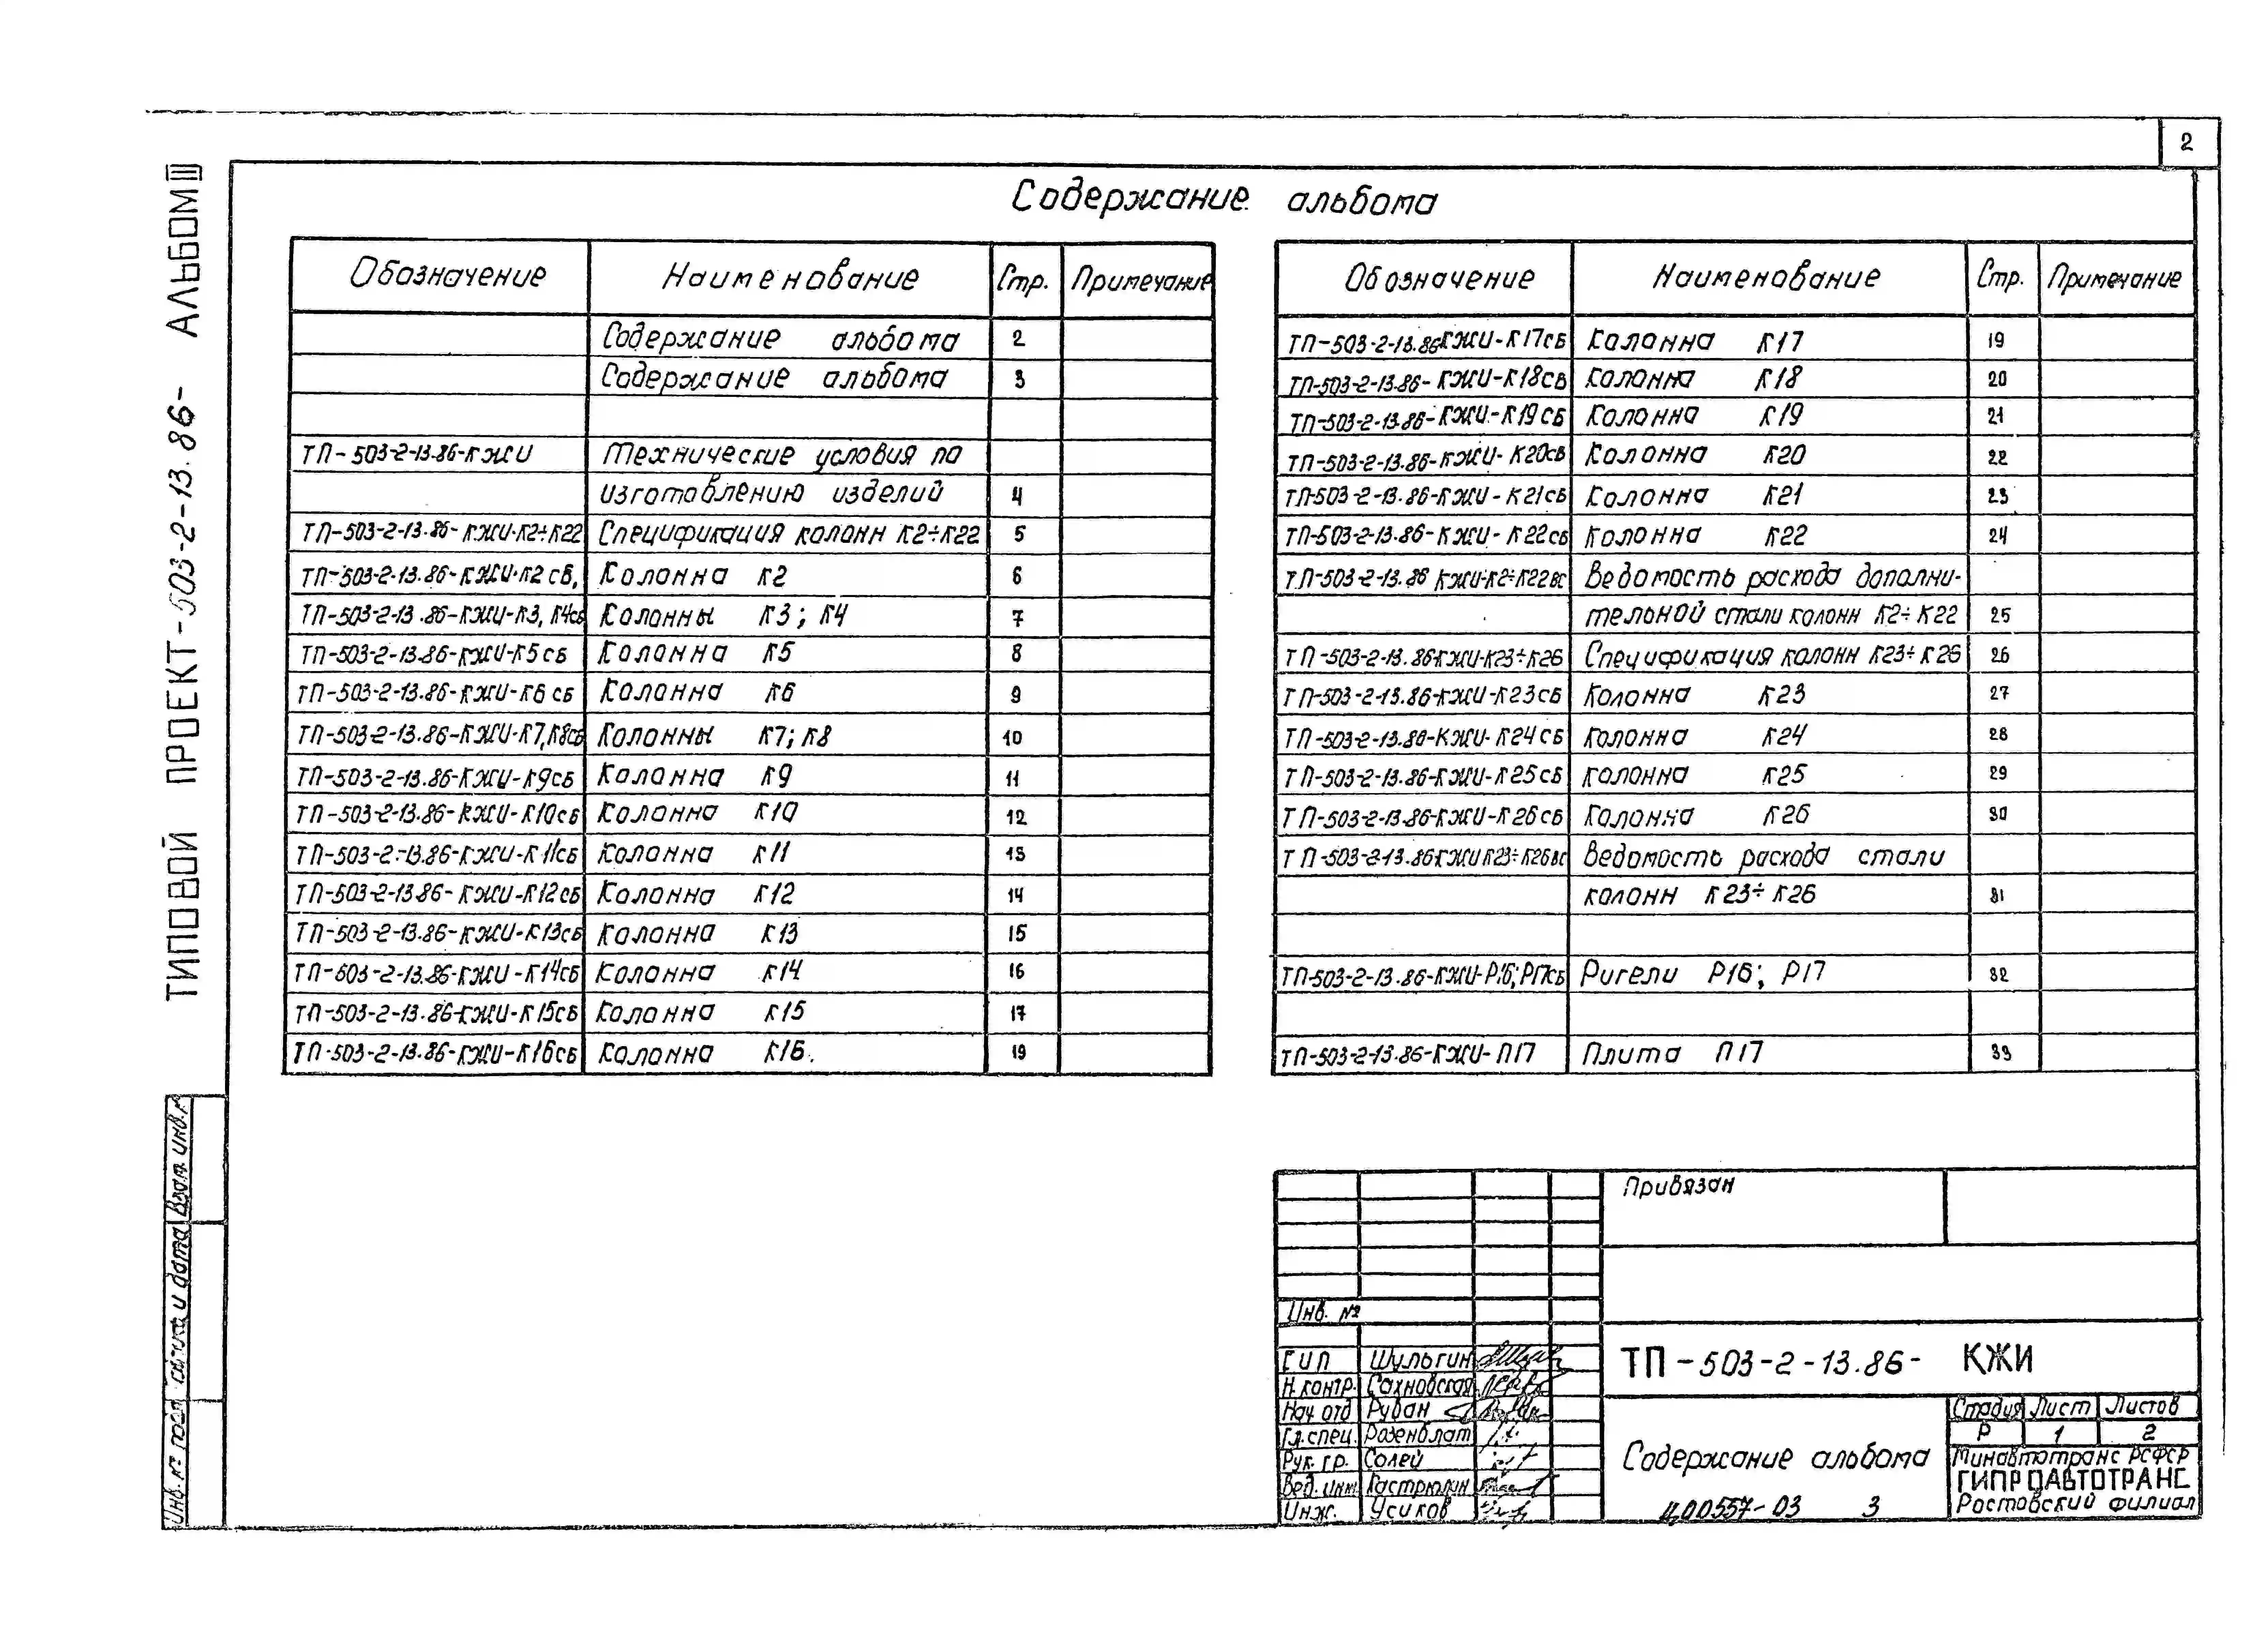 2
ТИПОВОЙ ПРОЕКТ-503-2-13.86- АЛЬБОМ III
Содержание альбома
Обозначение Наименование Стр. Примечание
Содержание альбома 2
Содержание альбома 3
ТП-503-2-13.86-КЖИ Технические условия по
изготовлению изделий 4
ТП-503-2-13.86-КЖИ-К2÷К22 Спецификация колонн К2÷К22 5
ТП-503-2-13.86-КЖИ-К2 сб, Колонна К2 6
ТП-503-2-13.86-КЖИ-К3, К4сб Колонны К3; К4 7
ТП-503-2-13.86-КЖИ-К5сб Колонна К5 8
ТП-503-2-13.86-КЖИ-К6 сб Колонна К6 9
ТП-503-2-13.86-КЖИ-К7,К8сб Колонны К7; К8 10
ТП-503-2-13.86-КЖИ-К9сб Колонна К9 11
ТП-503-2-13.86-КЖИ-К10сб Колонна К10 12
ТП-503-2-13.86-КЖИ-К11сб Колонна К11 13
ТП-503-2-13.86-КЖИ-К12сб Колонна К12 14
ТП-503-2-13.86-КЖИ-К13сб Колонна К13 15
ТП-503-2-13.86-КЖИ-К14сб Колонна К14 16
ТП-503-2-13.86-КЖИ-К15сб Колонна К15 17
ТП-503-2-13.86-КЖИ-К16сб Колонна К16. 19
Обозначение Наименование Стр. Примечание
ТП-503-2-13.86КЖИ-К17сб Колонна К17 19
ТП-503-2-13.86-КЖИ-К18сб Колонна К18 20
ТП-503-2-13.86-КЖИ-К19сб Колонна К19 21
ТП-503-2-13.86-КЖИ-К20сб Колонна К20 22
ТП-503-2-13.86-КЖИ-К21сб Колонна К21 23
ТП-503-2-13.86-КЖИ-К22сб Колонна К22 24
ТП-503-2-13.86 КЖИ-К2÷К22вс Ведомость расхода дополни-
тельной стали колонн К2÷К22 25
ТП-503-2-13.86КЖИ-К23÷К26 Спецификация колонн К23÷К26 26
ТП-503-2-13.86-КЖИ-К23сб Колонна К23 27
ТП-503-2-13.86-КЖИ-К24сб Колонна К24 28
ТП-503-2-13.86-КЖИ-К25сб Колонна К25 29
ТП-503-2-13.86-КЖИ-К26сб Колонна К26 30
ТП-503-2-13.86КЖИК23÷К26вс Ведомость расхода стали
колонн К23÷К26 31
ТП-503-2-13.86-КЖИ-Р16;Р17сб Ригели Р16; Р17 32
ТП-503-2-13.86-КЖИ-П17 Плита П17 33
Привязан
Инв. №
ГИП Шульгин
Н.контр. Сахновская
Нач отд Рудан
Гл.спец. Розенблат
Рук. гр. Солей
Вед. инж
Инж. Усиков
ТП-503-2-13.86- КЖИ
Содержание альбома
Стадия Лист Листов
Р 1 2
Минавтотранс РСФСР
ГИПРОАВТОТРАНС
Ростовский филиал
Ц00557-03 3
Инв. № подл Подпись и дата Взам. инв. №